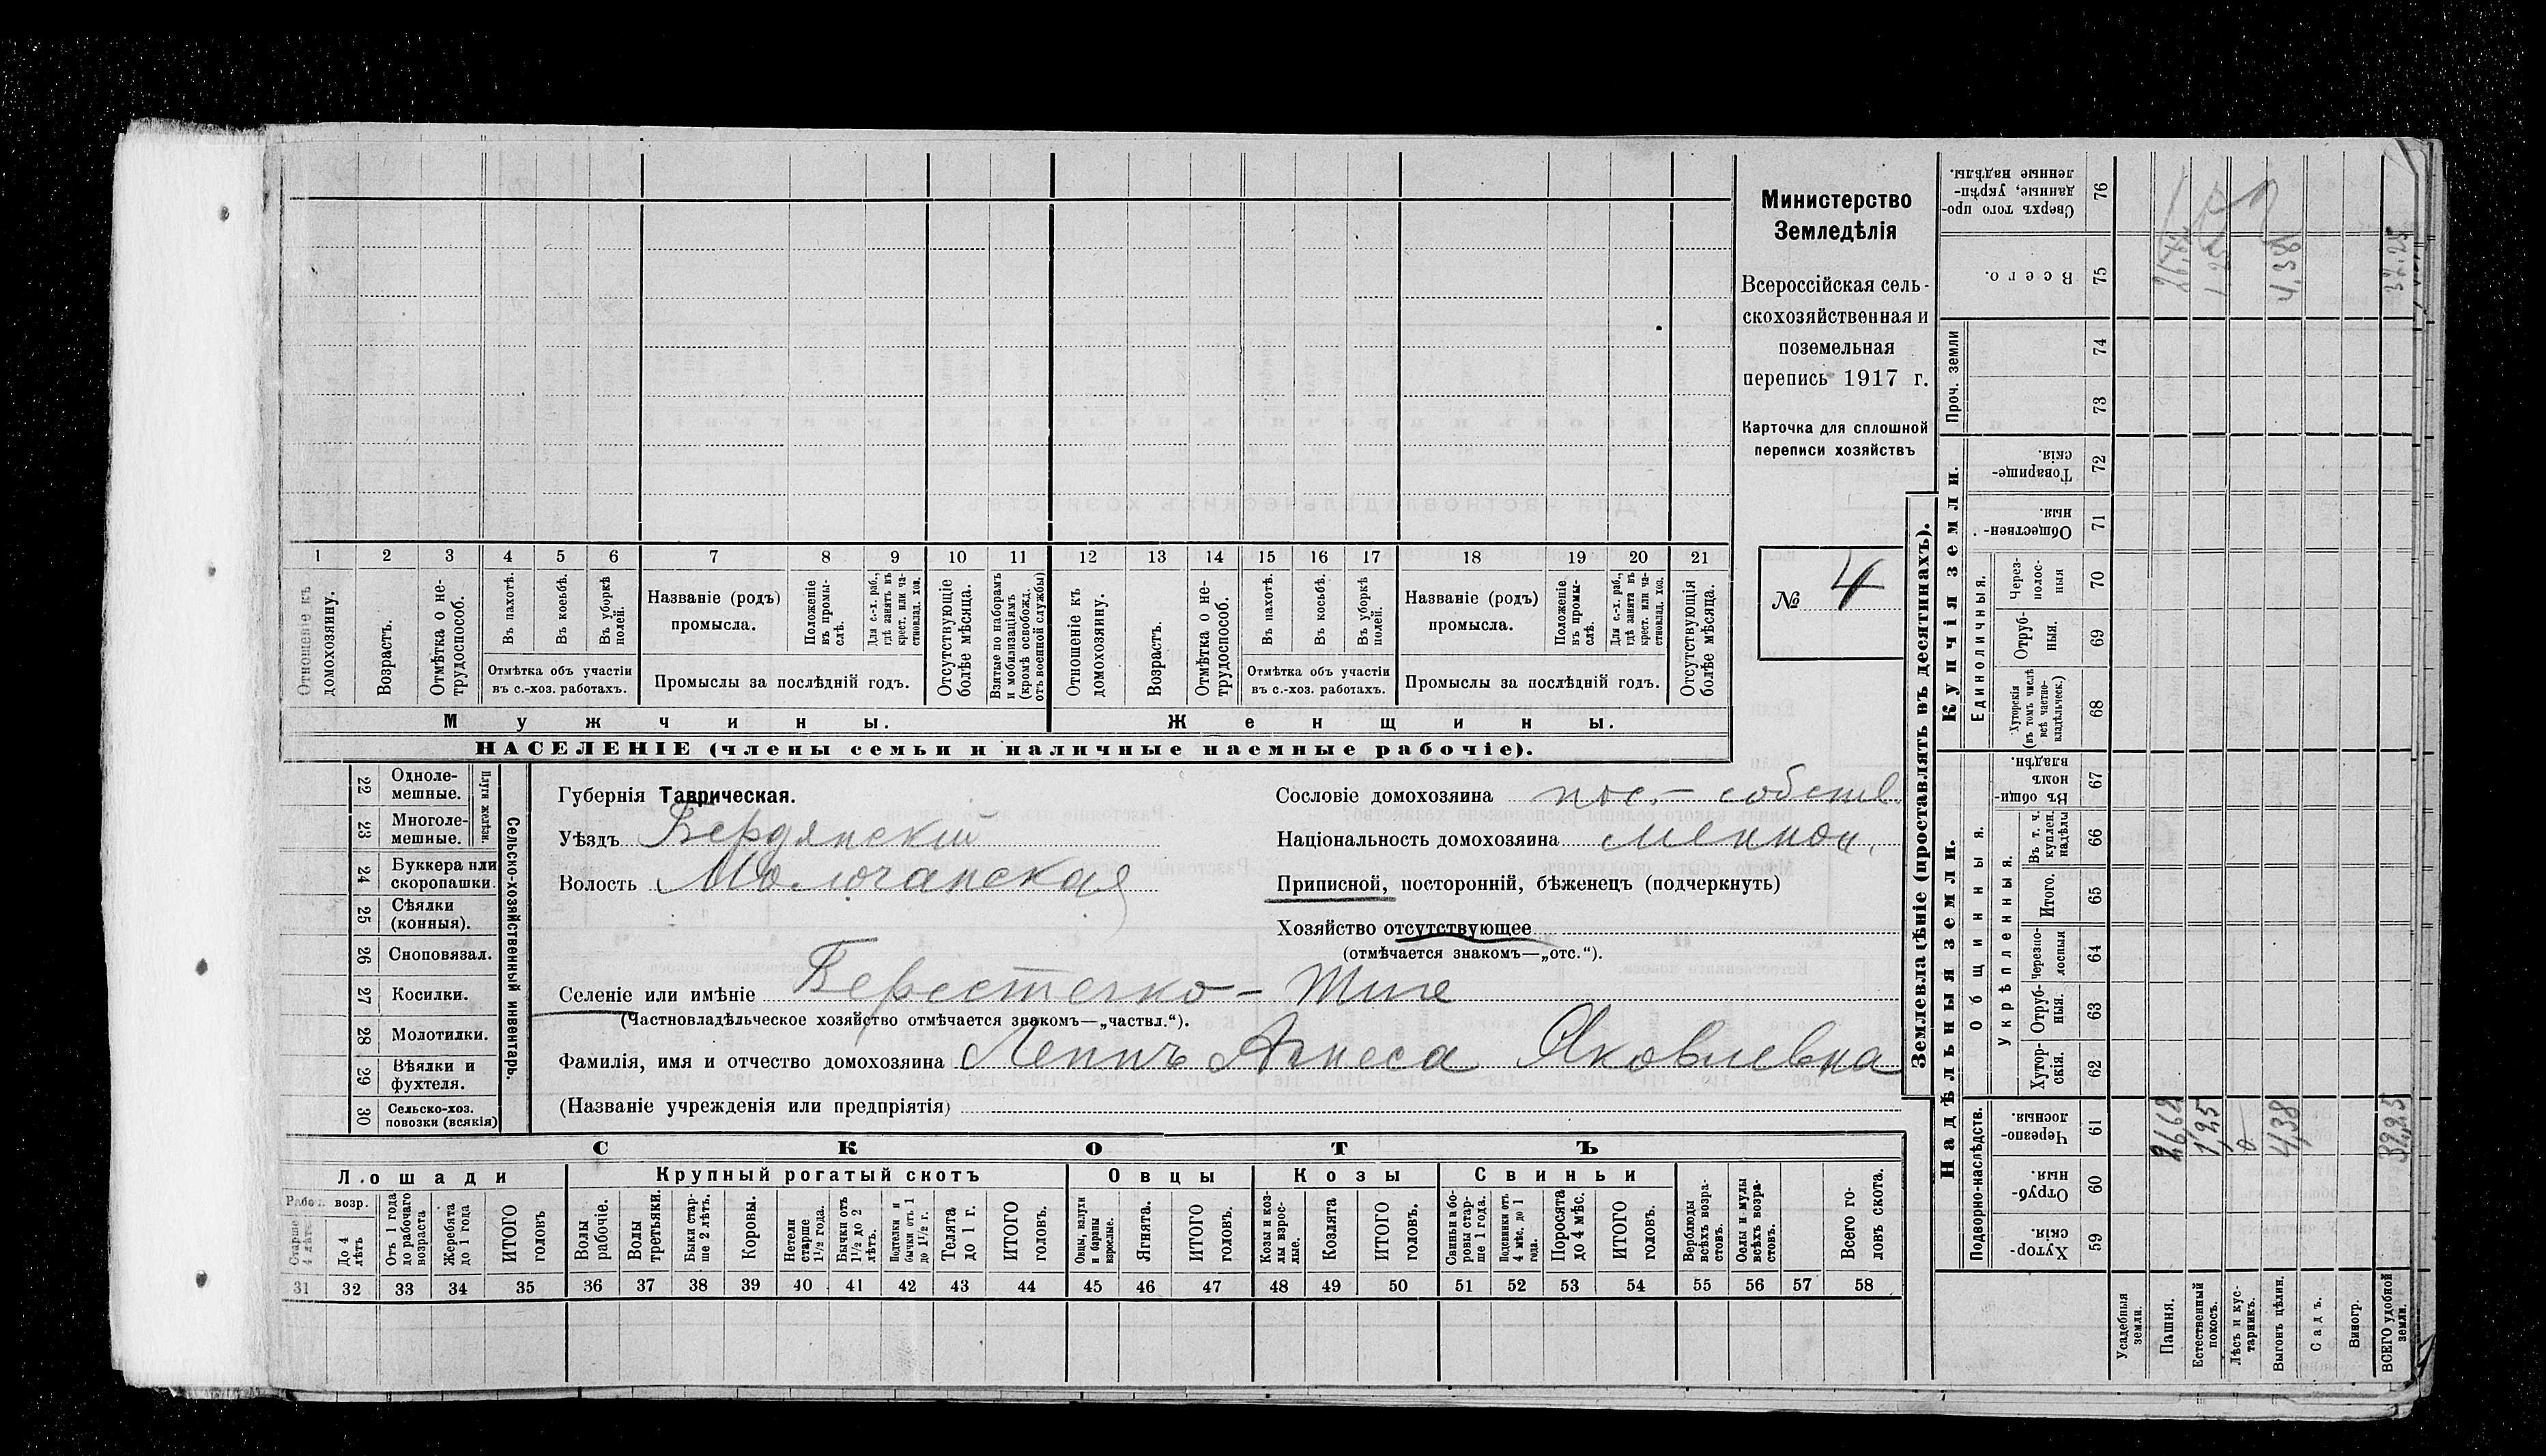 1 2 3 4 5 6 7 8 9 10 11 12 13 14 15 16 17 18 19 20 21
Отношеніе къ домохозяину.
Возрастъ.
Отмѣтка о не-
трудоспособ.
Въ пахотѣ.
Въ косьбѣ.
Въ уборкѣ
полей.
Отмѣтка объ участіи
въ с.-хоз. работахъ.
Названіе (родъ)
промысла.
Положеніе
въ промы-
слѣ.
Для с.-х. раб.,
гдѣ занятъ въ
крест. или ча-
стновлад. хоз.
Промыслы за послѣдній годъ.
Отсутствующіе
болѣе мѣсяца.
Взятые по наборамъ
и мобилизаціямъ
(кромѣ освобожд.
отъ военной службы)
Отношеніе къ
домохозяину.
Возрастъ.
Отмѣтка о не-
трудоспособ.
Въ пахотѣ.
Въ косьбѣ.
Въ уборкѣ
полей.
Отмѣтка объ участіи
въ с.-хоз. работахъ.
Названіе (родъ)
промысла.
Положеніе
въ промы-
слѣ.
Для с.-х. раб.,
гдѣ занята въ
крест. или ча-
стновлад. хоз.
Промыслы за послѣдній годъ.
Отсутствующія
болѣе мѣсяца.
Мужчины. Женщины.
НАСЕЛЕНІЕ (члены семьи и наличные наемные рабочіе).
Министерство
Земледѣлія
Всероссійская сель-
скохозяйственная и
поземельная
перепись 1917 г.
Карточка для сплошной
переписи хозяйствъ
№ 4
22 Одноле-
мешные.
23 Многоле-
мешные.
Плуги желѣзн.
24 Буккера или
скоропашки.
25 Сѣялки
(конныя).
26 Сноповязал.
27 Косилки.
28 Молотилки.
29 Вѣялки и
фухтеля.
30 Сельско-хоз.
повозки (всякія)
Сельско-хозяйственный инвентарь.
Губернія Таврическая.
Уѣздъ Бердянскій
Волость Молочанская
Сословіе домохозяина пос.- собств.
Національность домохозяина меннон.
Приписной, посторонній, бѣженецъ (подчеркнуть)
Хозяйство отсутствующее
(отмѣчается знакомъ—„отс.“).
Селеніе или имѣніе Берестечко- Тиге
(Частновладѣльческое хозяйство отмѣчается знакомъ—„частвл.“).
Фамилія, имя и отчество домохозяина Леппъ Агнеса Яковлевна
(Названіе учрежденія или предпріятія)
СКОТЪ
Лошади Крупный рогатый скотъ Овцы Козы Свиньи
Рабоч. возр.
Старше
4 лѣтъ
До 4
лѣтъ
Отъ 1 года
до рабочаго
возраста
Жеребята
до 1 года
ИТОГО
головъ
Волы
рабочіе.
Волы
третьяки.
Быки стар-
ше 2 лѣтъ.
Коровы.
Нетели
старше
1½ года.
Бычки отъ
1½ до 2
лѣтъ.
Подтелки и
бычки отъ 1
до 1½ г.
Телята
до 1 г.
ИТОГО
головъ.
Овцы, валухи
и бараны
взрослые.
Ягнята.
ИТОГО
головъ.
Козы и коз-
лы взрос-
лые.
Козлята
ИТОГО
головъ.
Свиньи и бо-
ровы стар-
ше 1 года.
Подсвинки отъ
4 мѣс. до 1
года.
Поросята
до 4 мѣс.
ИТОГО
головъ.
Верблюды
всѣхъ возра-
стовъ.
Ослы и мулы
всѣхъ возра-
стовъ.
Всего го-
ловъ скота.
31 32 33 34 35 36 37 38 39 40 41 42 43 44 45 46 47 48 49 50 51 52 53 54 55 56 57 58
Землевладѣніе (проставлять въ десятинахъ).
Надѣльныя земли. Купчія земли.
Проч. земли
Подворно-наслѣдств.
Общинныя.
Укрѣпленныя.
Единоличныя.
Сверхъ того про-
данные, укрѣп-
ленные надѣлы.
76
Всего.
75
74
73
Товарище-
скія.
72
Обществен-
ныя.
71
Через-
полос-
ныя
70
Отруб-
ныя.
69
Хуторскія
(въ томъ числѣ
всѣ частно-
владѣльческ.)
68
Въ общин-
номъ
владѣн.
67
Въ т. ч.
куплен.
надѣлы
66
Итого.
65
Черезпо-
лосныя
64
Отруб-
ныя.
63
Хутор-
скія.
62
Черезпо-
лосныя.
61
Отруб-
ныя.
60
Хутор-
скія.
59
Усадебныя
земли.
Пашня.
Естественный
покосъ.
Лѣсъ и кус-
тарникъ.
Выгонъ цѣлин.
Садъ.
Виногр.
ВСЕГО удобной
земли.
26,62
1,25
4,38
32,25
26,62
1,25
4,38
32,25